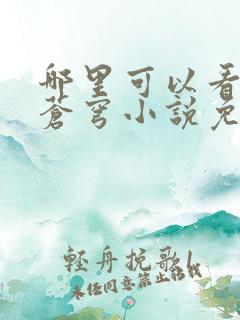 哪里可以看
蒼穹小說免
輕舟挽歌
未经同意禁止转载